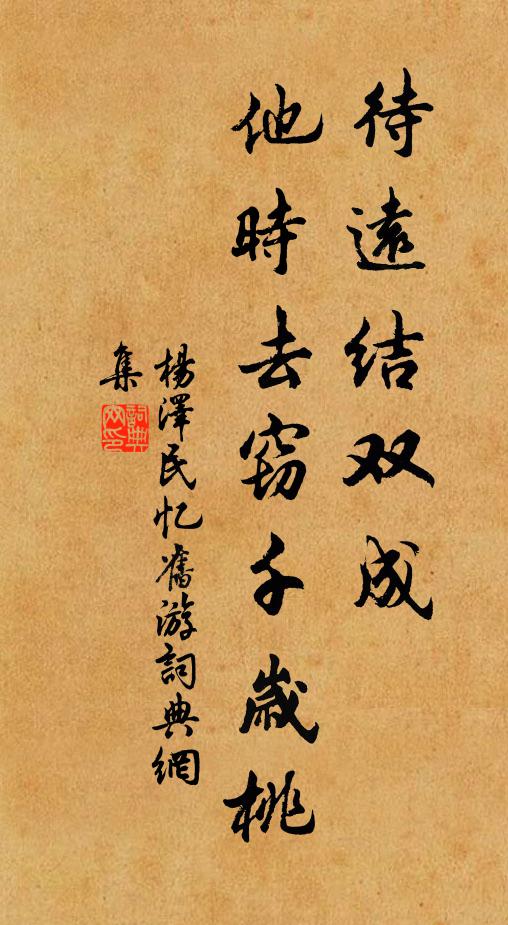 待遠结双成
他時去窃千歲桃
楊澤民忆舊游詞典網
集
詞典网印